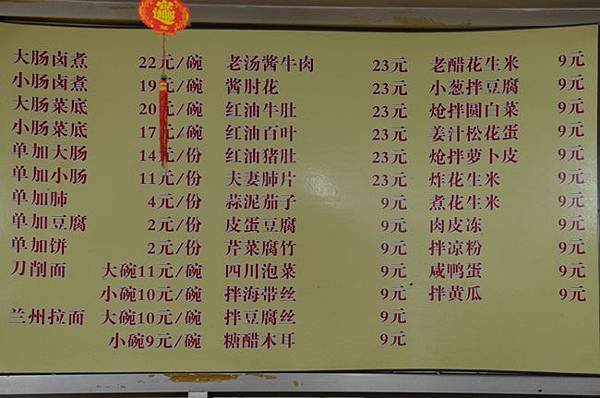 大肠卤煮 22元/碗
小肠卤煮 19元/碗
大肠菜底 20元/碗
小肠菜底 17元/碗
单加大肠 14元/份
单加小肠 11元/份
单加肺 4元/份
单加豆腐 2元/份
单加饼 2元/份
刀削面 大碗11元/碗
小碗10元/碗
兰州拉面 大碗10元/碗
小碗9元/碗
老汤酱牛肉 23元
酱肘花 23元
红油牛肚 23元
红油百叶 23元
红油猪肚 23元
夫妻肺片 23元
蒜泥茄子 9元
皮蛋豆腐 9元
芹菜腐竹 9元
四川泡菜 9元
拌海带丝 9元
拌豆腐丝 9元
糖醋木耳 9元
老醋花生米 9元
小葱拌豆腐 9元
炝拌圆白菜 9元
姜汁松花蛋 9元
炝拌萝卜皮 9元
炸花生米 9元
煮花生米 9元
肉皮冻 9元
拌凉粉 9元
咸鸭蛋 9元
拌黄瓜 9元